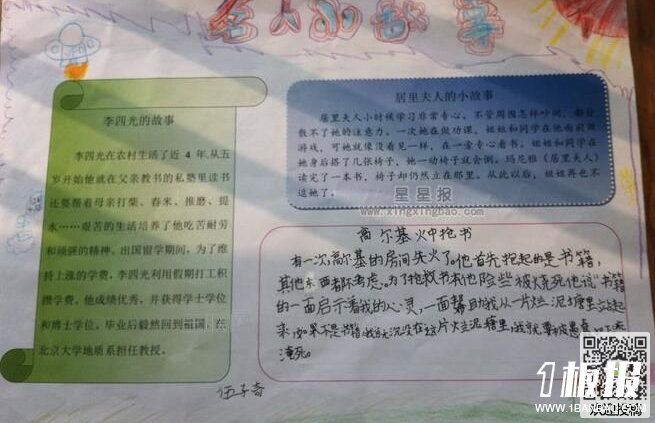 名人的故事
李四光的故事
李四光在农村生活了近 4 年,从五
岁开始他就在父亲教书的私塾里读书
还要帮着母亲打柴、舂米、推磨、提
水……艰苦的生活培养了他吃苦耐劳
和顽强的精神。出国留学期间,为了维
持上涨的学费,李四光利用假期打工积
攒学费。他成绩优秀,并获得学士学位
和博士学位。毕业后毅然回到祖国,在
北京大学地质系担任教授。
居里夫人的小故事
居里夫人小时候学习非常专心,不管周围怎样吵闹,都分
散不了她的注意力。一次她在做功课,姐姐和同学在她面前做
游戏,可她就像没看见一样,在一旁专心看书。姐姐和同学在
她身后搭了几张椅子,她一动椅子就会倒。玛尼雅(居里夫人)
读完了一本书,椅子却仍然立在那里。从此以后,姐姐再也不
逗她了。
星星报
www.xingxingbao.com
高尔基火中抢书
有一次,高尔基的房间失火了。他首先抱起的是书籍,
其他东西都不考虑。为了抢救书籍他险些被烧死他说"书籍
的一面启示着我的心灵,一面帮助我从一片烂泥塘里站起
来,如果不是书籍,我就沉没在这片烂泥塘里,我就要被愚蠢
淹死。
伍子奇
1板报
WWW.1BANBAO.COM
欢迎投稿